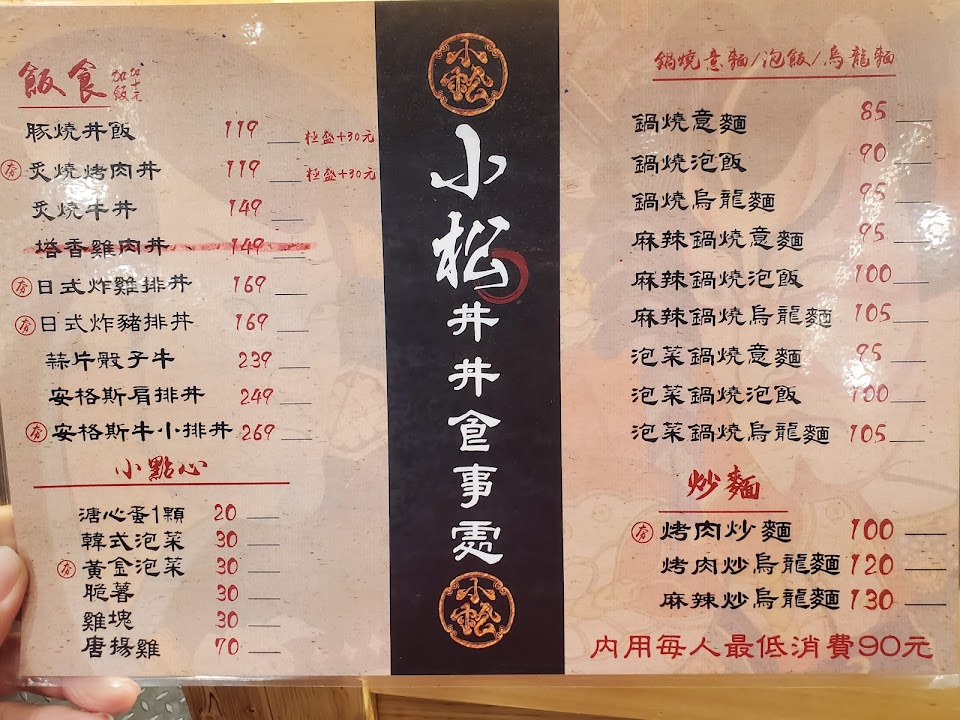 飯食 加飯加十元
豚燒丼飯 119 極盛+30元
夯 炙燒烤肉丼 119 極盛+30元
炙燒牛丼 149
塔香雞肉丼 149
夯 日式炸雞排丼 169
夯 日式炸豬排丼 169
蒜片骰子牛 239
安格斯肩排丼 249
夯 安格斯牛小排丼 269
小點心
溏心蛋1顆 20
韓式泡菜 30
夯 黃金泡菜 30
脆薯 30
雞塊 30
唐揚雞 70
小松
小松丼丼食事處
小松
鍋燒意麵/泡飯/烏龍麵
鍋燒意麵 85
鍋燒泡飯 90
鍋燒烏龍麵 95
麻辣鍋燒意麵 95
麻辣鍋燒泡飯 100
麻辣鍋燒烏龍麵 105
泡菜鍋燒意麵 95
泡菜鍋燒泡飯 100
泡菜鍋燒烏龍麵 105
炒麵
夯 烤肉炒麵 100
烤肉炒烏龍麵 120
麻辣炒烏龍麵 130
內用每人最低消費90元